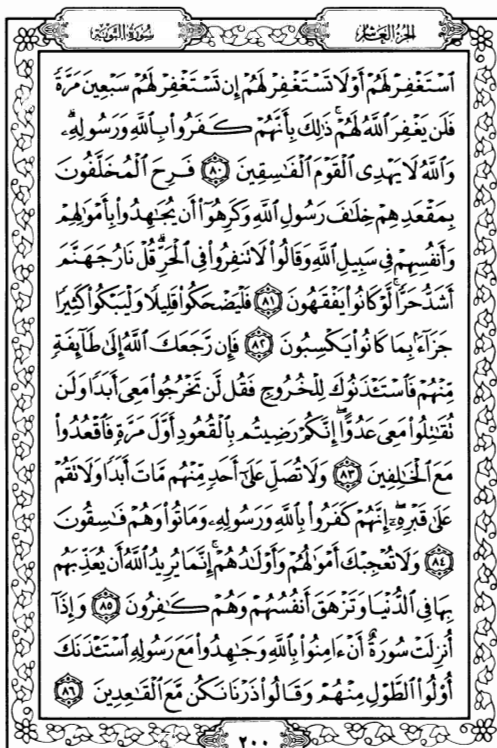 سُورَةُ التَّوْبَةِ
الجُزْءُ العَاشِرُ
ٱسْتَغْفِرْ لَهُمْ أَوْ لَا تَسْتَغْفِرْ لَهُمْ إِن تَسْتَغْفِرْ لَهُمْ سَبْعِينَ مَرَّةً
فَلَن يَغْفِرَ ٱللَّهُ لَهُمْ ۚ ذَٰلِكَ بِأَنَّهُمْ كَفَرُوا۟ بِٱللَّهِ وَرَسُولِهِۦ ۗ
وَٱللَّهُ لَا يَهْدِى ٱلْقَوْمَ ٱلْفَـٰسِقِينَ ٨٠ فَرِحَ ٱلْمُخَلَّفُونَ
بِمَقْعَدِهِمْ خِلَـٰفَ رَسُولِ ٱللَّهِ وَكَرِهُوٓا۟ أَن يُجَـٰهِدُوا۟ بِأَمْوَٰلِهِمْ
وَأَنفُسِهِمْ فِى سَبِيلِ ٱللَّهِ وَقَالُوا۟ لَا تَنفِرُوا۟ فِى ٱلْحَرِّ ۗ قُلْ نَارُ جَهَنَّمَ
أَشَدُّ حَرًّا ۚ لَّوْ كَانُوا۟ يَفْقَهُونَ ٨١ فَلْيَضْحَكُوا۟ قَلِيلًا وَلْيَبْكُوا۟ كَثِيرًا
جَزَآءًۢ بِمَا كَانُوا۟ يَكْسِبُونَ ٨٢ فَإِن رَّجَعَكَ ٱللَّهُ إِلَىٰ طَآئِفَةٍ
مِّنْهُمْ فَٱسْتَـْٔذَنُوكَ لِلْخُرُوجِ فَقُل لَّن تَخْرُجُوا۟ مَعِىَ أَبَدًا وَلَن
تُقَـٰتِلُوا۟ مَعِىَ عَدُوًّا ۖ إِنَّكُمْ رَضِيتُم بِٱلْقُعُودِ أَوَّلَ مَرَّةٍ فَٱقْعُدُوا۟
مَعَ ٱلْخَـٰلِفِينَ ٨٣ وَلَا تُصَلِّ عَلَىٰٓ أَحَدٍ مِّنْهُم مَّاتَ أَبَدًا وَلَا تَقُمْ
عَلَىٰ قَبْرِهِۦٓ ۖ إِنَّهُمْ كَفَرُوا۟ بِٱللَّهِ وَرَسُولِهِۦ وَمَاتُوا۟ وَهُمْ فَـٰسِقُونَ
٨٤ وَلَا تُعْجِبْكَ أَمْوَٰلُهُمْ وَأَوْلَـٰدُهُمْ ۚ إِنَّمَا يُرِيدُ ٱللَّهُ أَن يُعَذِّبَهُم
بِهَا فِى ٱلدُّنْيَا وَتَزْهَقَ أَنفُسُهُمْ وَهُمْ كَـٰفِرُونَ ٨٥ وَإِذَآ
أُنزِلَتْ سُورَةٌ أَنْ ءَامِنُوا۟ بِٱللَّهِ وَجَـٰهِدُوا۟ مَعَ رَسُولِهِ ٱسْتَـْٔذَنَكَ
أُو۟لُوا۟ ٱلطَّوْلِ مِنْهُمْ وَقَالُوا۟ ذَرْنَا نَكُن مَّعَ ٱلْقَـٰعِدِينَ ٨٦
٢٠٠